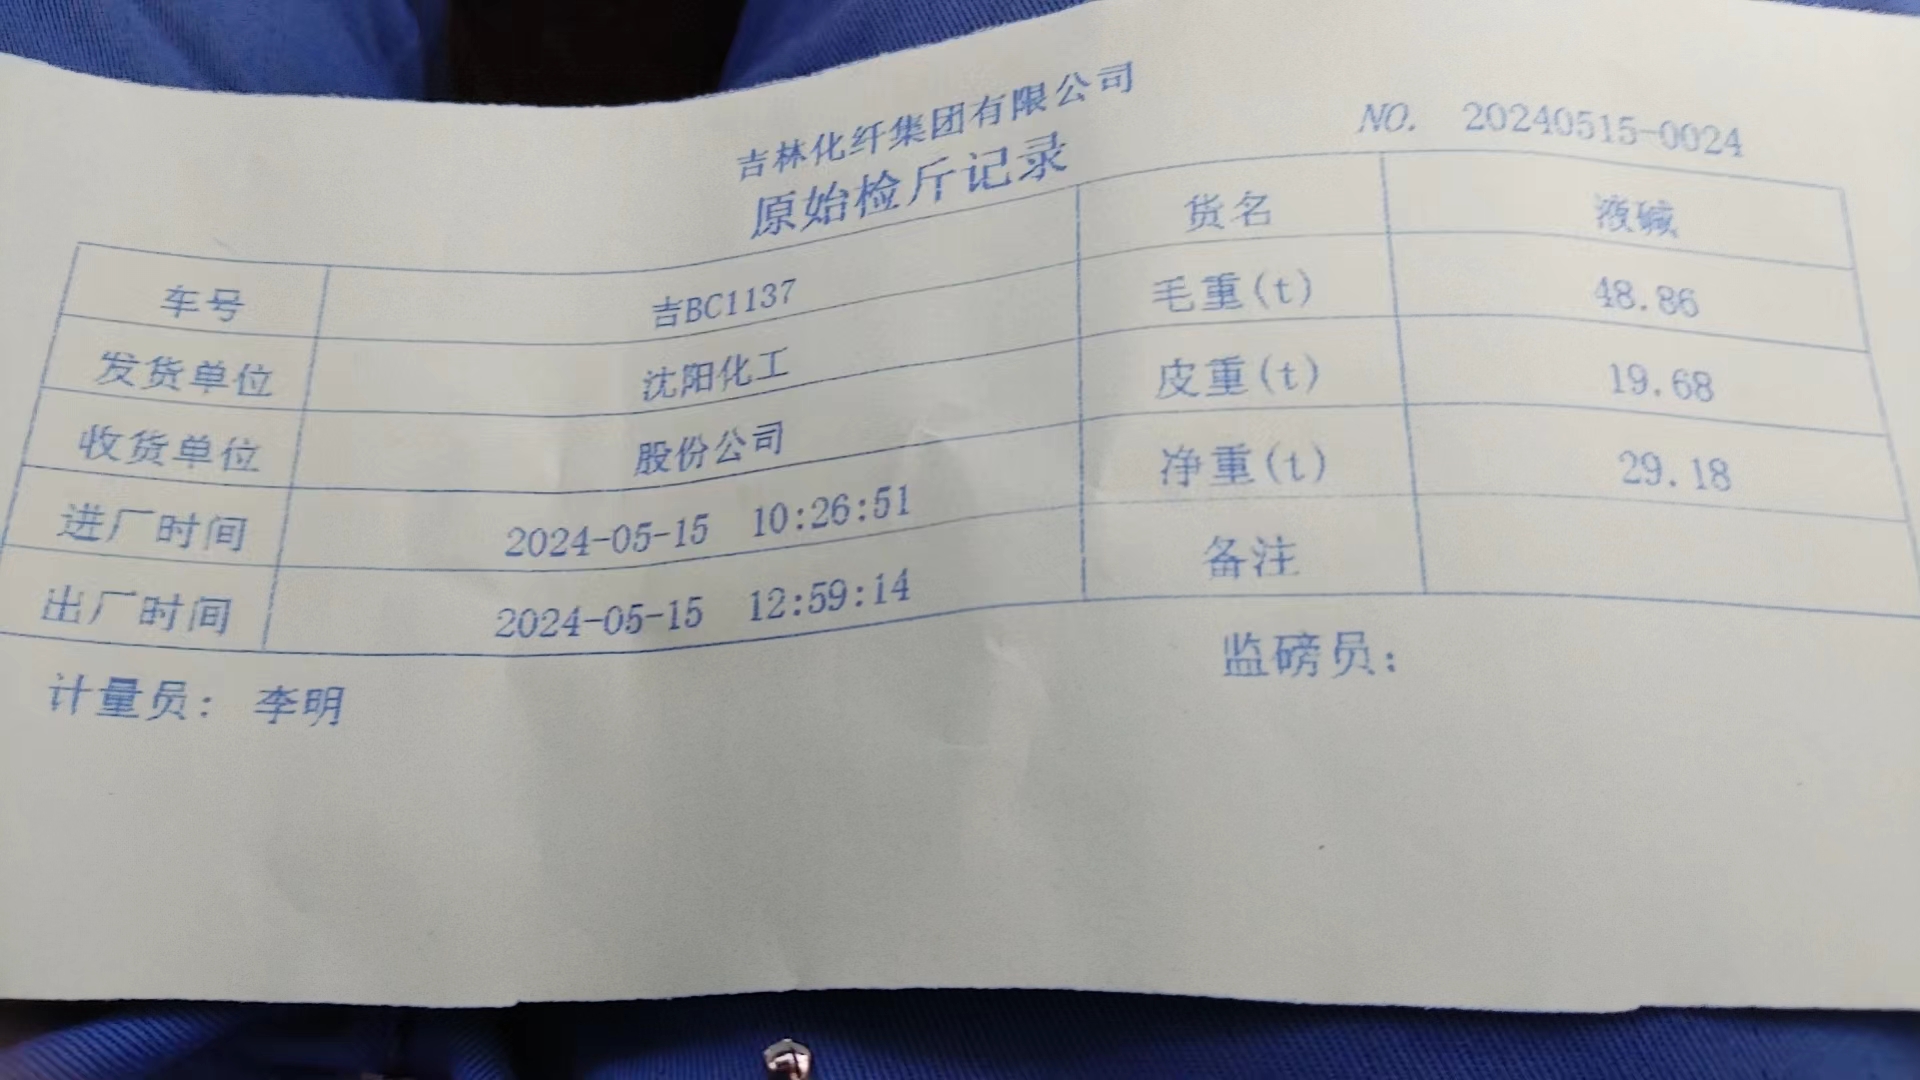 吉林化纤集团有限公司
原始检斤记录
NO. 20240515-0024
车号 吉BC1137 货名 液碱
发货单位 沈阳化工 毛重(t) 48.86
收货单位 股份公司 皮重(t) 19.68
进厂时间 2024-05-15 10:26:51 净重(t) 29.18
出厂时间 2024-05-15 12:59:14 备注
计量员: 李明 监磅员: